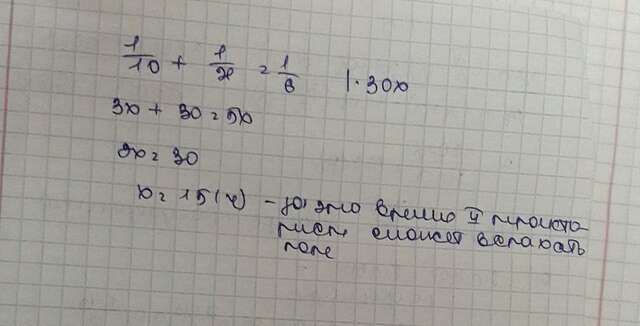 1/10 + 1/x = 1/6 | · 30x
3x + 30 = 5x
2x = 30
x = 15 (ч) - за это время II тракто-
рист сможет вспахать
поле